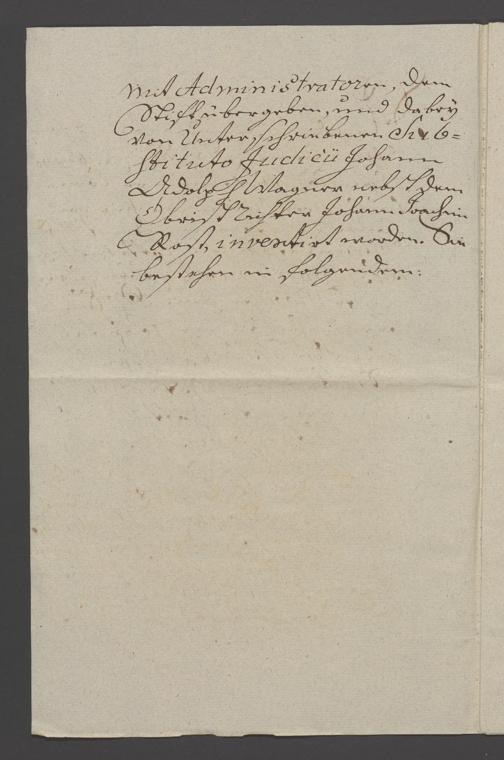 mit Administratoren, dem
Stifft übergeben, und dabey
von Unterschriebenen Sub=
stituto Judicii Johann
Adolph Wagner nebst dem
Obrist Richter Johann Joachim
Rost, inventirt worden. Sie
bestehen in folgendem: